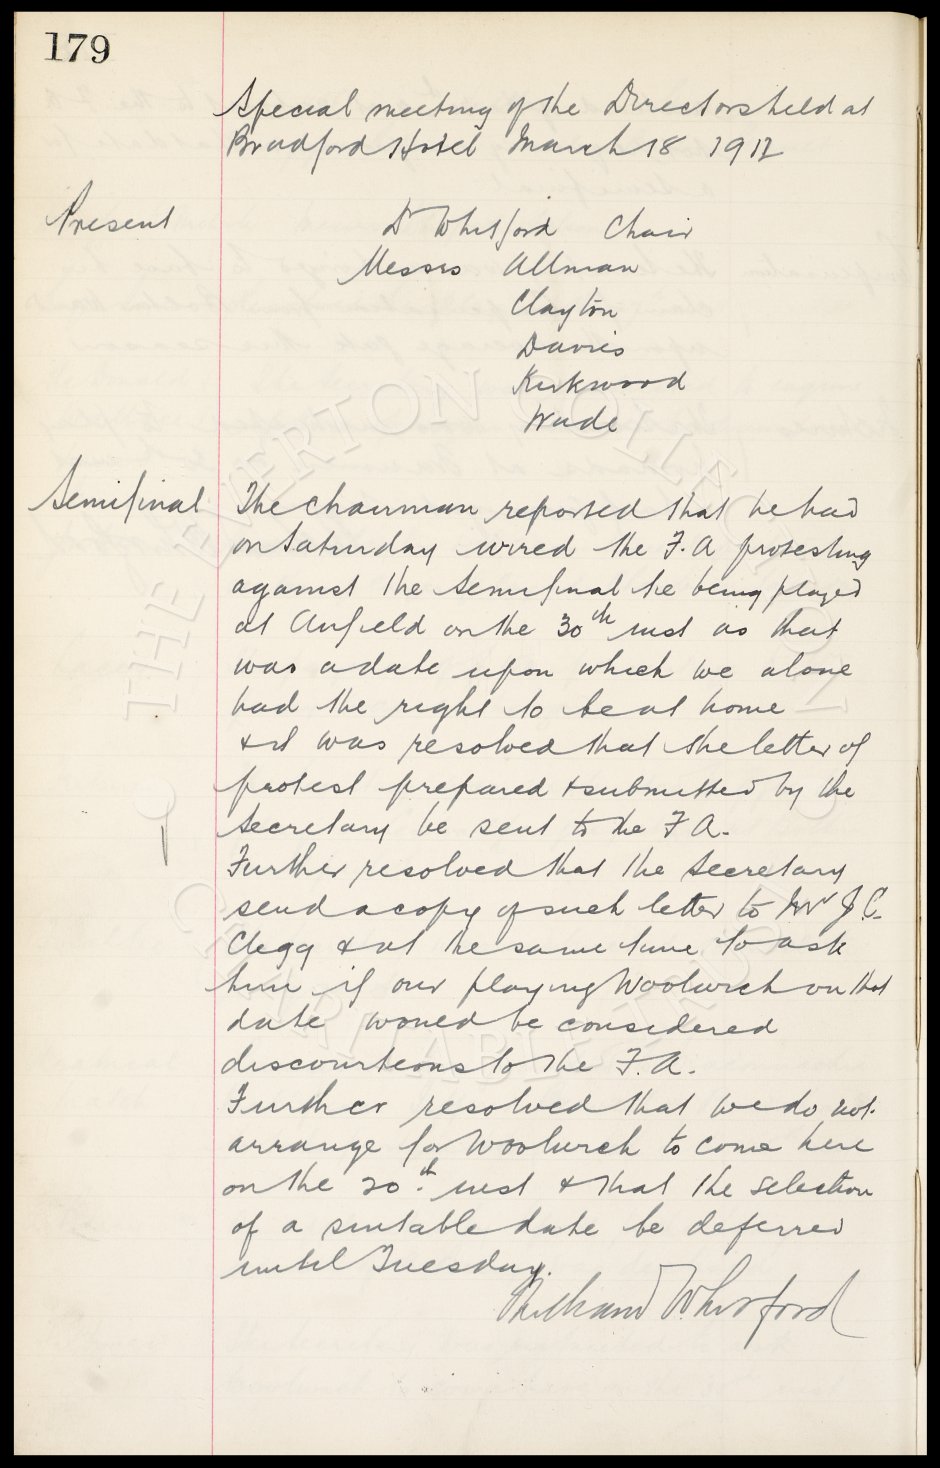 179
Special meeting of the Directors held at
Bradford Hotel March 18 1912
Present
Dr Whitford Chair
Messrs Allman
Clayton
Davies
Kirkwood
Wade
Semifinal
The chairman reported that he had
on Saturday wired the F.A protesting
against the Semifinal tie being played
at Anfield on the 30th inst as that
was a date upon which we alone
had the right to be at home
& it was resolved that the letter of
protest prepared & submitted by the
Secretary be sent to the F A.
Further resolved that the Secretary
send a copy of such letter to Mr J. C.
Clegg & at the same time to ask
him if our playing Woolwich on that
date would be considered
discourteous to the F.A.
Further resolved that we do not
arrange for Woolwich to come here
on the 20th inst & that the selection
of a suitable date be deferred
until Tuesday.
Whitford
THE EVERTON COLLECTION
CHARITABLE TRUST